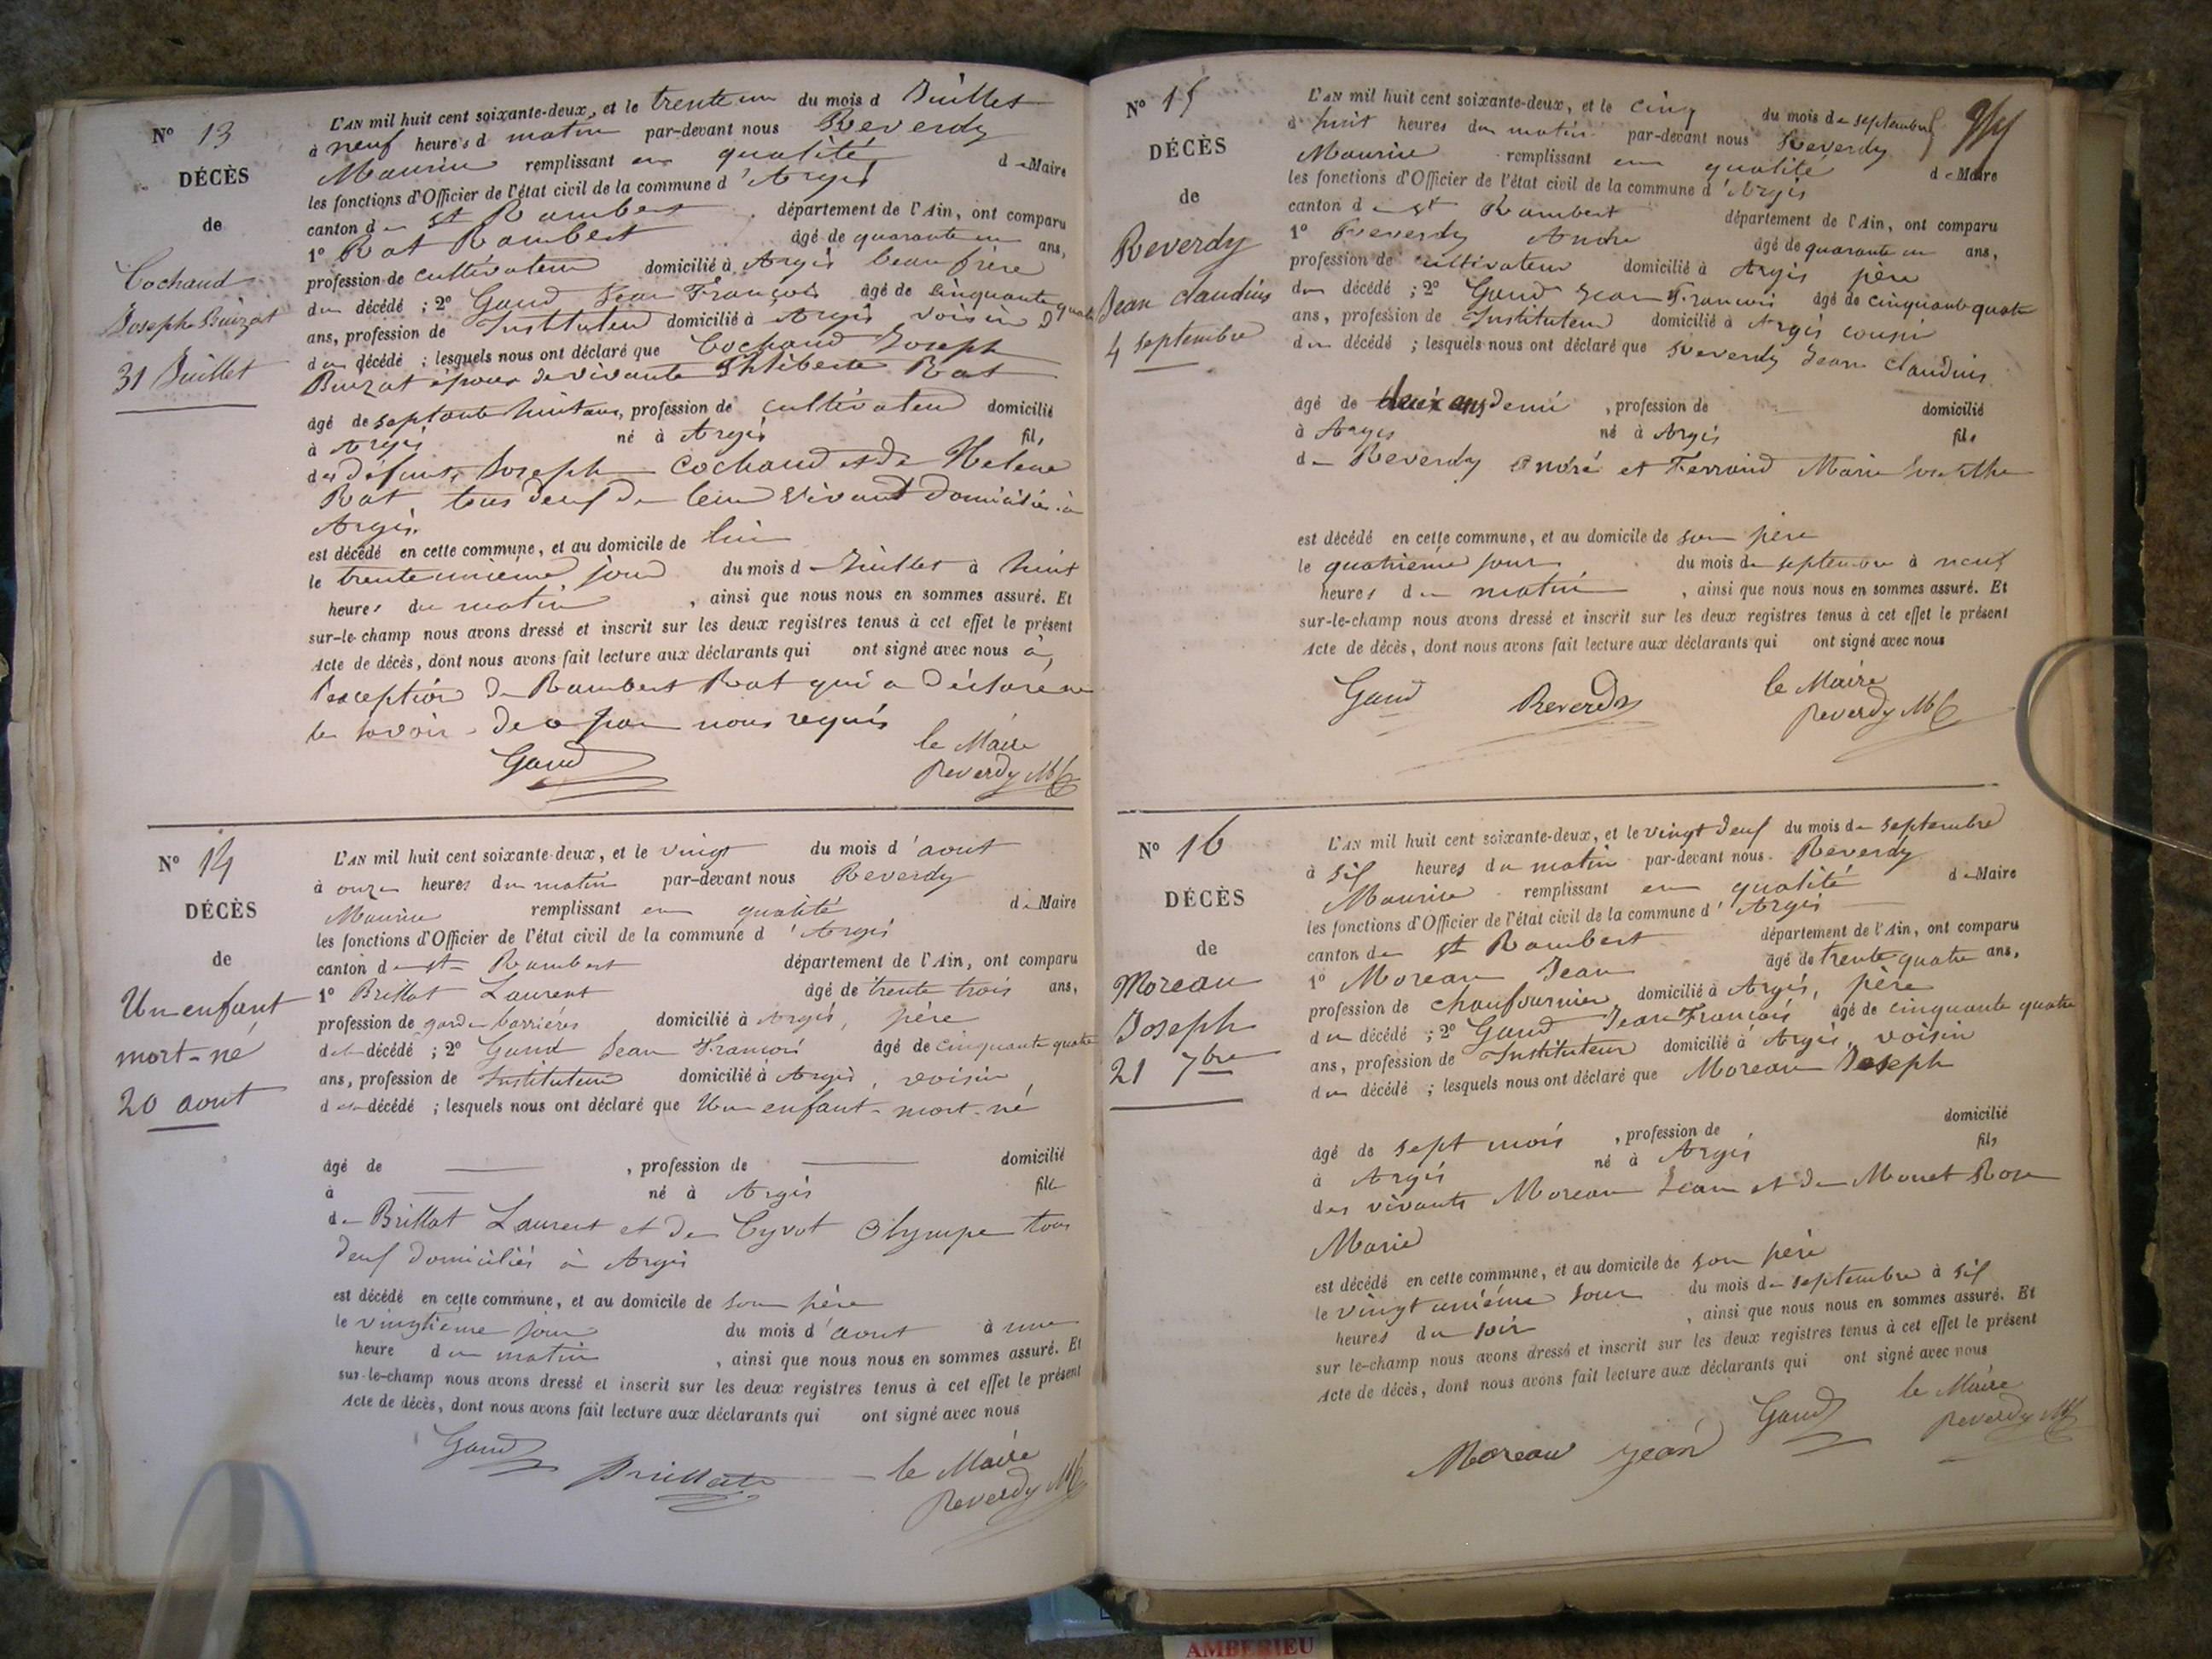 N° 13
DÉCÈS
de
Cochand
Joseph Buizat
31 Juillet
L'AN mil huit cent soixante-deux, et le trente un du mois d Juillet
à neuf heures d matin par-devant nous Reverdy
Maurice remplissant en qualité de Maire
les fonctions d'Officier de l'état civil de la commune d'Argis
canton de st Rambert département de l'Ain, ont comparu
1° Rat Rambert âgé de quarante un ans,
profession de cultivateur domicilié à Argis beau frère
du décédé ; 2° Gaud Jean François âgé de cinquante quatre
ans, profession de Instituteur domicilié à Argis voisin
du décédé ; lesquels nous ont déclaré que Cochand Joseph
Buizat époux de vivante Philiberte Rat
âgé de septante huit ans, profession de cultivateur domicilié
à Argis né à Argis fils
des défunts Joseph Cochand et de Helene
Rat tous deux de leur vivant domiciliés à
Argis
est décédé en cette commune, et au domicile de lui
le trente unième jour du mois d Juillet à huit
heures du matin , ainsi que nous nous en sommes assuré. Et
sur-le-champ nous avons dressé et inscrit sur les deux registres tenus à cet effet le présent
Acte de décès, dont nous avons fait lecture aux déclarants qui ont signé avec nous à
l'exception de Rambert Rat qui a déclaré ne
le savoir de ce par nous requis
Gaud le Maire
Reverdy M
N° 14
DÉCÈS
de
Un enfant
mort-né
20 aout
L'AN mil huit cent soixante-deux, et le vingt du mois d'aout
à onze heures du matin par-devant nous Reverdy
Maurice remplissant en qualité de Maire
les fonctions d'Officier de l'état civil de la commune d'Argis
canton de st Rambert département de l'Ain, ont comparu
1° Brillat Laurent âgé de trente trois ans,
profession de garde barrières domicilié à Argis, père
de la décédé ; 2° Gaud Jean François âgé de cinquante quatre
ans, profession de Instituteur domicilié à Argis, voisin
de la décédé ; lesquels nous ont déclaré que Un enfant mort-né
âgé de , profession de domicilié
à né à Argis fille
de Brillat Laurent et de Cyvot Olympe tous
deux domiciliés à Argis
est décédé en cette commune, et au domicile de son père
le vingtième jour du mois d'aout à une
heure du matin , ainsi que nous nous en sommes assuré. Et
sur-le-champ nous avons dressé et inscrit sur les deux registres tenus à cet effet le présent
Acte de décès, dont nous avons fait lecture aux déclarants qui ont signé avec nous
Gaud Brillat le Maire
Reverdy M
N° 15
DÉCÈS
de
Reverdy
Jean Claudius
4 septembre
L'AN mil huit cent soixante-deux, et le cinq du mois de septembre
à huit heures du matin par-devant nous Reverdy
Maurice remplissant en qualité de Maire
les fonctions d'Officier de l'état civil de la commune d'Argis
canton de st Rambert département de l'Ain, ont comparu
1° Reverdy André âgé de quarante un ans,
profession de cultivateur domicilié à Argis père
du décédé ; 2° Gaud Jean François âgé de cinquante quatre
ans, profession de Instituteur domicilié à Argis cousin
du décédé ; lesquels nous ont déclaré que Reverdy Jean Claudius
âgé de deux ans demi , profession de domicilié
à Argis né à Argis fils
de Reverdy André et Ferrand Marie
est décédé en cette commune, et au domicile de son père
le quatrième jour du mois de septembre à neuf
heures du matin , ainsi que nous nous en sommes assuré. Et
sur-le-champ nous avons dressé et inscrit sur les deux registres tenus à cet effet le présent
Acte de décès, dont nous avons fait lecture aux déclarants qui ont signé avec nous
Gaud Reverdy le Maire
Reverdy M
N° 16
DÉCÈS
de
Moreau
Joseph
21 7bre
L'AN mil huit cent soixante-deux, et le vingt deux du mois de septembre
à six heures du matin par-devant nous Reverdy
Maurice remplissant en qualité de Maire
les fonctions d'Officier de l'état civil de la commune d'Argis
canton de st Rambert département de l'Ain, ont comparu
1° Moreau Jean âgé de trente quatre ans,
profession de chaufournier domicilié à Argis, père
du décédé ; 2° Gaud Jean François âgé de cinquante quatre
ans, profession de Instituteur domicilié à Argis, voisin
du décédé ; lesquels nous ont déclaré que Moreau Joseph
âgé de sept mois , profession de domicilié
à Argis né à Argis fils
des vivants Moreau Jean et de Monet Rose
Marie
est décédé en cette commune, et au domicile de son père
le vingt unième jour du mois de septembre à six
heures du soir , ainsi que nous nous en sommes assuré. Et
sur le-champ nous avons dressé et inscrit sur les deux registres tenus à cet effet le présent
Acte de décès, dont nous avons fait lecture aux déclarants qui ont signé avec nous
Moreau Jean Gaud le Maire
Reverdy M
AMBERIEU